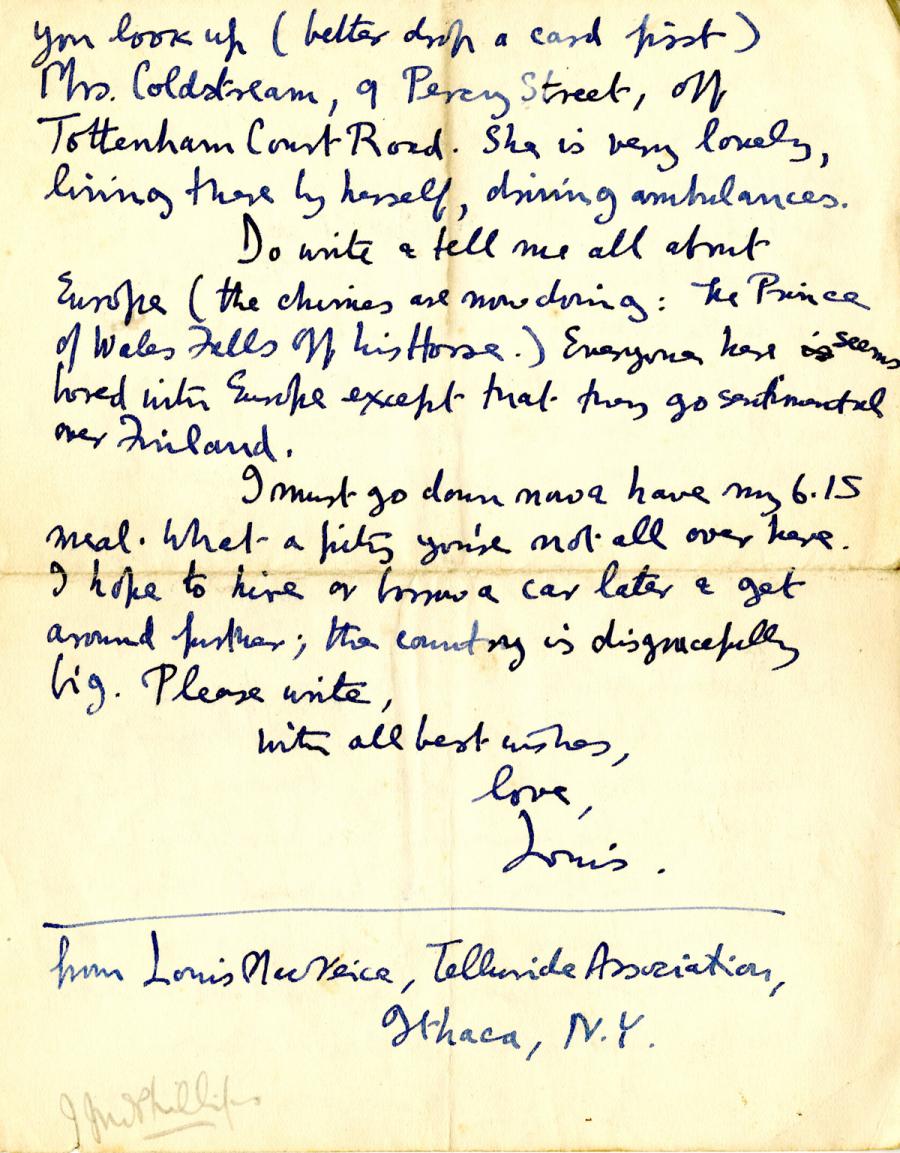 you look up (better drop a card first)
Mrs. Coldstream, 9 Percy Street, off
Tottenham Court Road. She is very lonely,
living there by herself, driving ambulances.
Do write & tell me all about
Europe (the chimes are now doing: The Prince
of Wales Falls Off his Horse.) Everyone here is seems
bored with Europe except that they go sentimental
over Finland.
I must go down now & have my 6.15
meal. What a pity you're not all over here.
I hope to hire or borrow a car later & get
around further; the country is disgracefully
big. Please write,
with all best wishes,
love,
Louis.
from Louis MacNeice, Telluride Association,
Ithaca, N.Y.